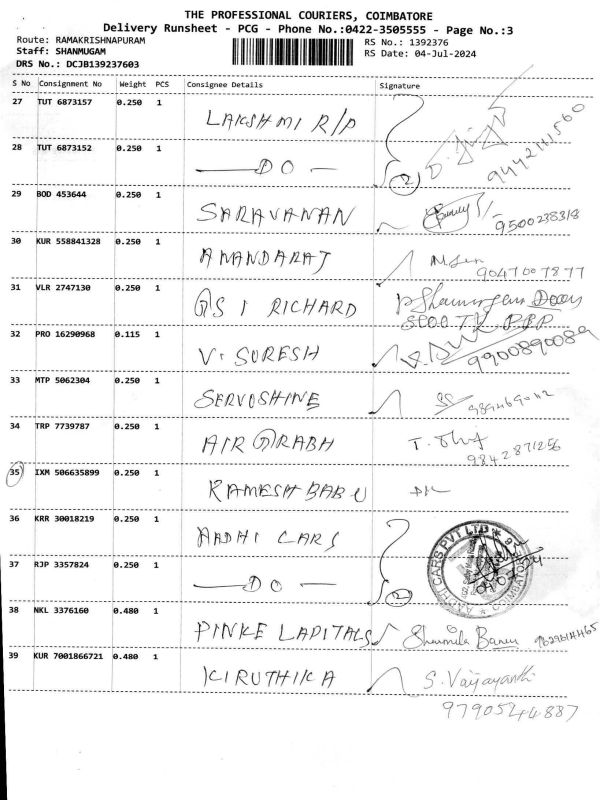 THE PROFESSIONAL COURIERS, COIMBATORE
Delivery Runsheet - PCG - Phone No.:0422-3505555 - Page No.:3
Route: RAMAKRISHNAPURAM RS No.: 1392376
Staff: SHANMUGAM RS Date: 04-Jul-2024
DRS No.: DCJB139237603
S No Consignment No Weight PCS Consignee Details Signature
27 TUT 6873157 0.250 1 LAKSHMI R/P
28 TUT 6873152 0.250 1 — DO — 2 9442141560
29 BOD 453644 0.250 1 SARAVANAN 9500238318
30 KUR 558841328 0.250 1 ANANDARAJ 9047007877
31 VLR 2747130 0.250 1 GS I RICHARD
32 PRO 16290968 0.115 1 V. SURESH 9900890089
33 MTP 5062304 0.250 1 SERVOSHINE
34 TRP 7739787 0.250 1 AIR GRABH 9842871256
35 IXM 506635899 0.250 1 RAMESH BABU
36 KRR 30018219 0.250 1 AADHI CARS
37 RJP 3357824 0.250 1 — DO — 2 AADHI CARS PVT LTD
38 NKL 3376160 0.480 1 PINKE LAPITALS Sharmila Banu
39 KUR 7001866721 0.480 1 KIRUTHIKA S. Vaijayanthi
9790544887